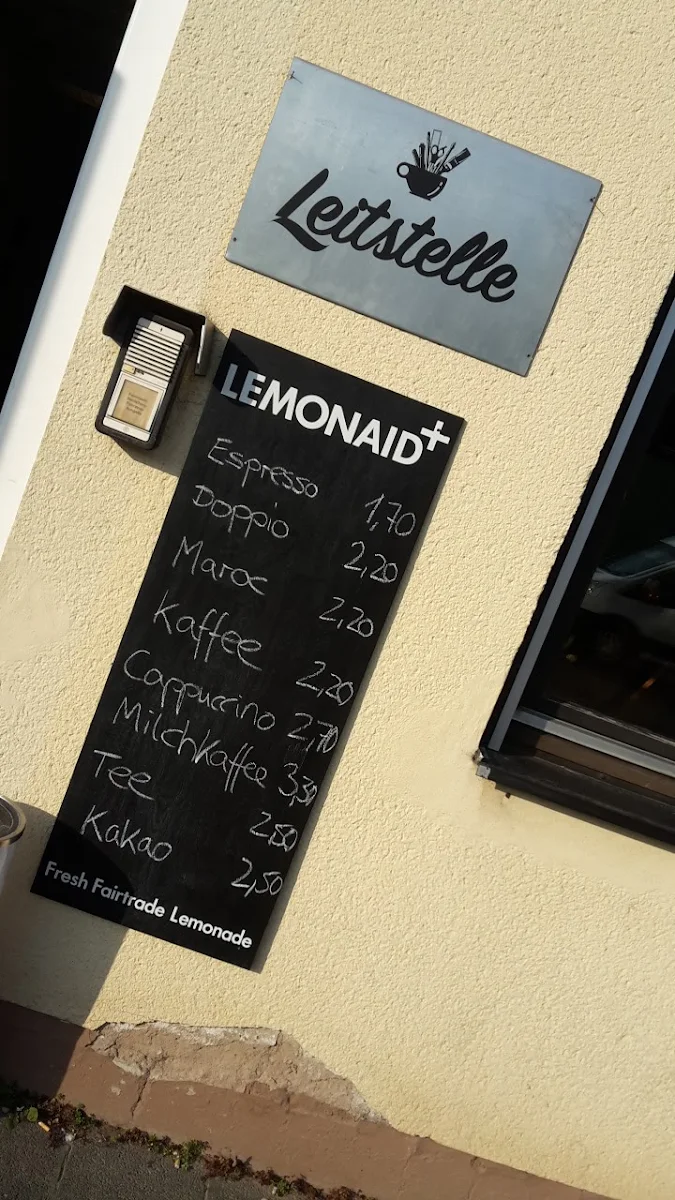 Leitstelle
LEMONAID+
Espresso 1,70
Doppio 2,20
Maroc 2,20
Kaffee 2,20
Cappuccino 2,70
Milchkaffee 3,30
Tee 2,50
Kakao 2,50
Fresh Fairtrade Lemonade